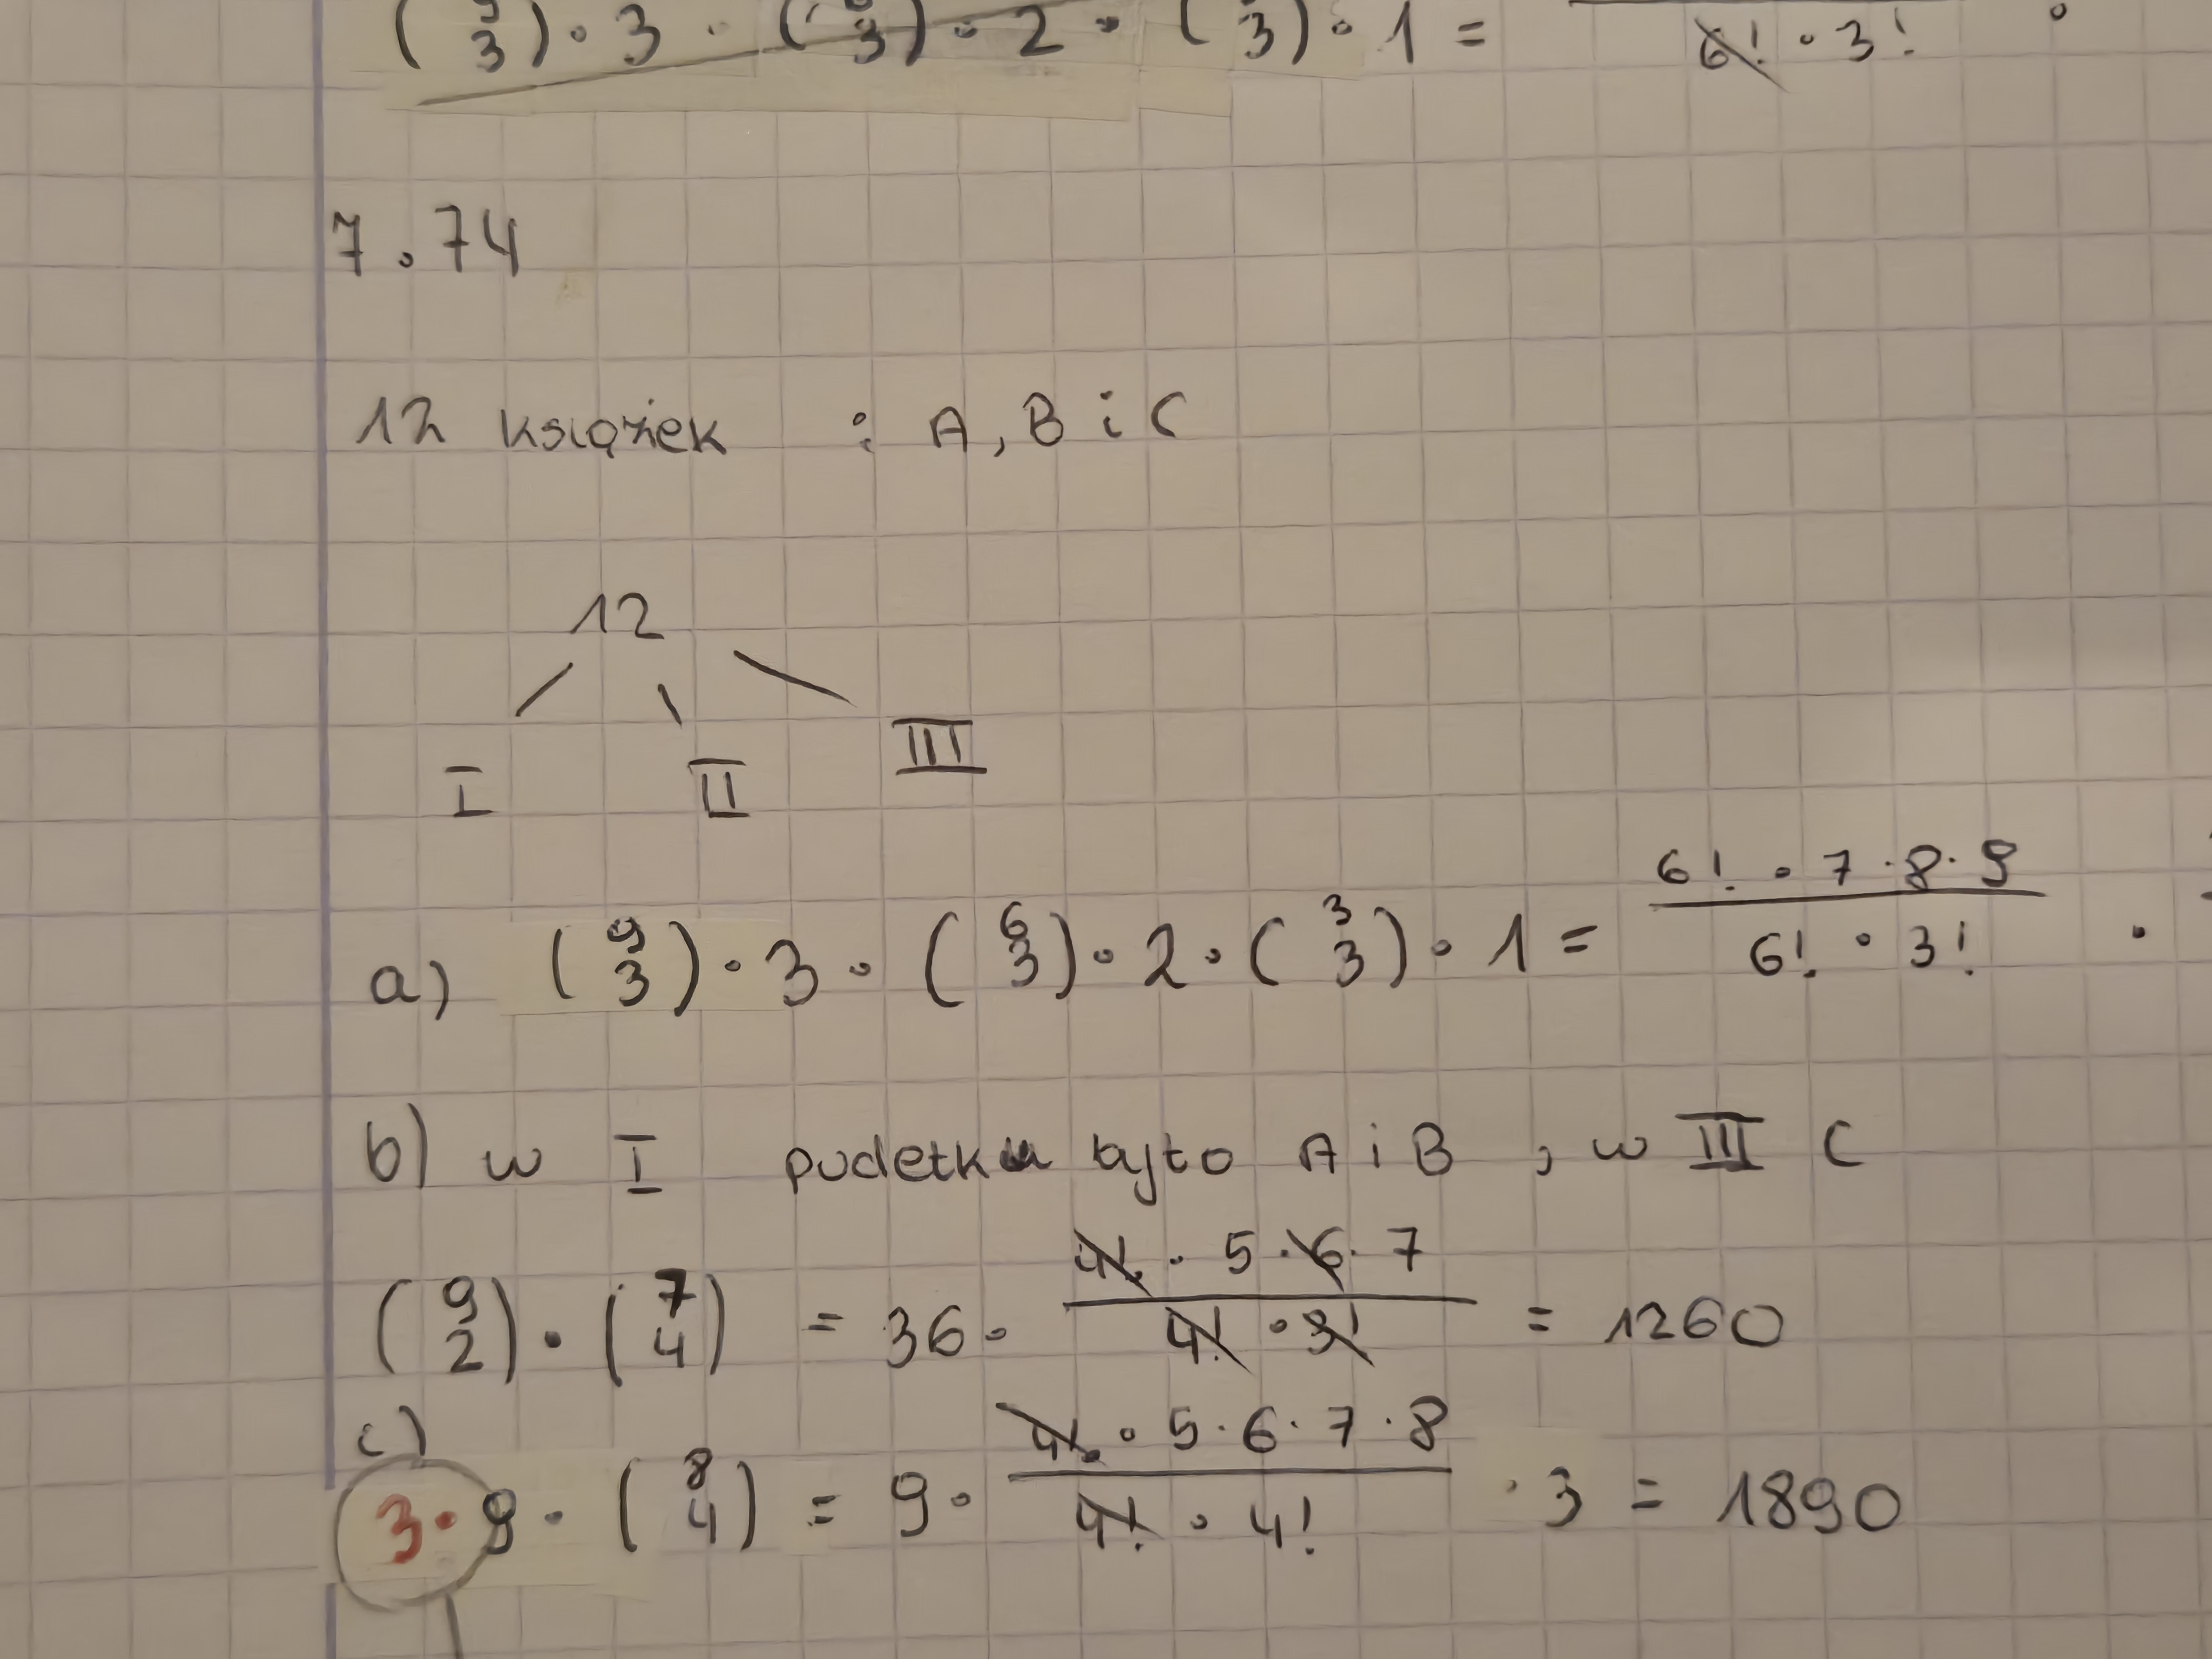 ( 3 ) · 3 · ( 3 ) · 2 · ( 3 ) · 1 = 6! · 3! ·
7.74
12 książek : A, B i C
12
I II III
a) (9 3) · 3 · (6 3) · 2 · (3 3) · 1 = 6! · 7 · 8 · 9 / 6! · 3! ·
b) w I pudełku było A i B , w III C
(9 2) · (7 4) = 36 · 4! · 5 · 6 · 7 / 4! · 3! = 1260
c)
3 · 9 · (8 4) = 9 · 4! · 5 · 6 · 7 · 8 / 4! · 4! · 3 = 1890